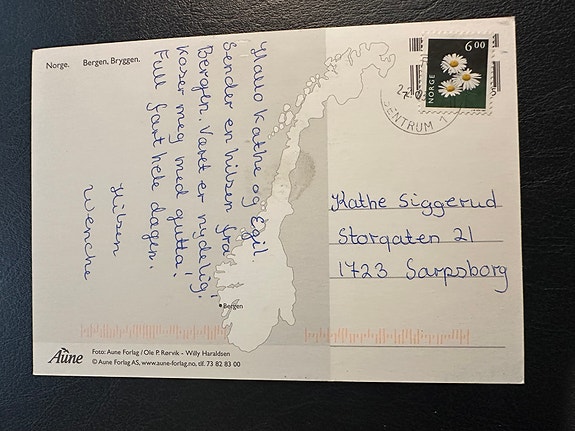 Norge. Bergen, Bryggen.
Hallo Kathe og Egil.
Sender en hilsen fra
Bergen. Været er nydelig!
Koser meg med gutta!
Full fart hele dagen.
Hilsen
Wenche
6 00
NORGE
SENTRUM 1
Kathe Siggerud
Storgaten 21
1723 Sarpsborg
Bergen
Aune
Foto: Aune Forlag / Ole P. Rørvik - Willy Haraldsen
© Aune Forlag AS, www.aune-forlag.no, tlf. 73 82 83 00